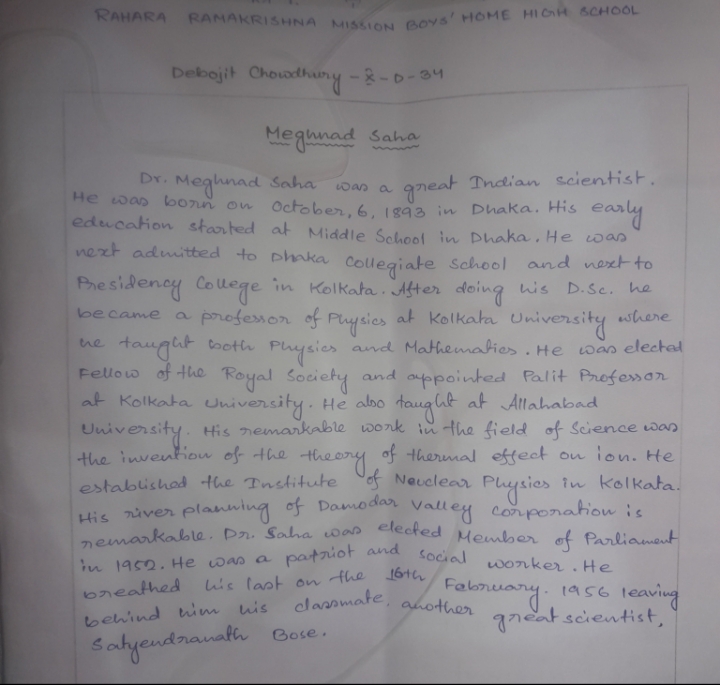 RAHARA RAMAKRISHNA MISSION BOYS' HOME HIGH SCHOOL
Debojit Chowdhury - X - D - 34
Meghnad Saha
Dr. Meghnad Saha was a great Indian scientist.
He was born on October, 6, 1893 in Dhaka. His early
education started at Middle School in Dhaka. He was
next admitted to Dhaka Collegiate School and next to
Presidency College in Kolkata. After doing his D.Sc. he
became a professor of Physics at Kolkata University where
he taught both Physics and Mathematics. He was elected
Fellow of the Royal Society and appointed Palit Professor
at Kolkata University. He also taught at Allahabad
University. His remarkable work in the field of Science was
the invention of the theory of thermal effect on ion. He
established the Institute of Neuclear Physics in Kolkata.
His river planning of Damodar Valley Corporation is
remarkable. Dr. Saha was elected Member of Parliament
in 1952. He was a patriot and social worker. He
breathed his last on the 16th February. 1956 leaving
behind him his classmate, another great scientist,
Satyendranath Bose.